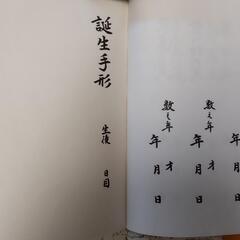 誕生手形
生後 日目
数え年 才
年 月 日
数え年 才
年 月 日